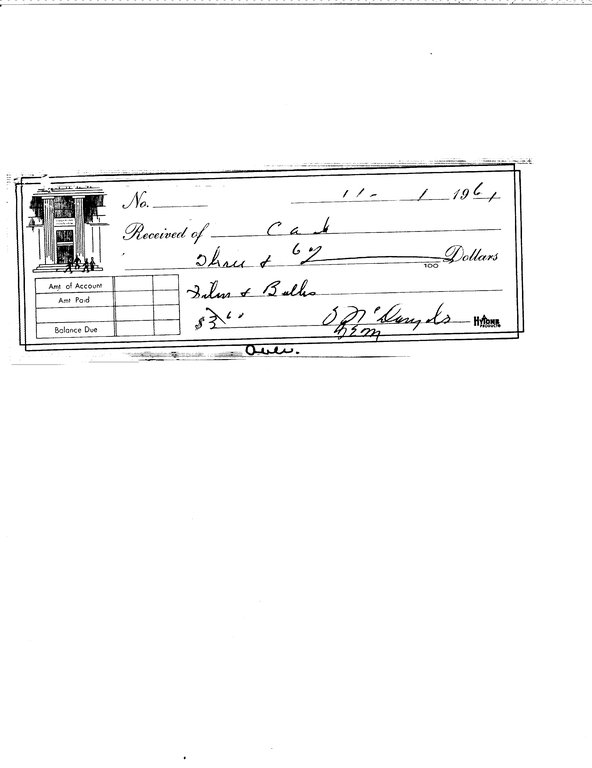 No. 11- 1 1961
Received of Cash
Three & 60/100 Dollars
Amt of Account
Film & Bulbs
Amt Paid
$3.60
Balance Due
HYTONE PRODUCTS
Over.